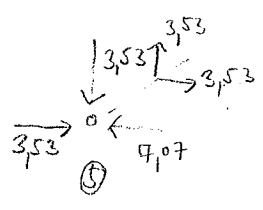 3,53
3,53
3,53
3,53
7,07
5